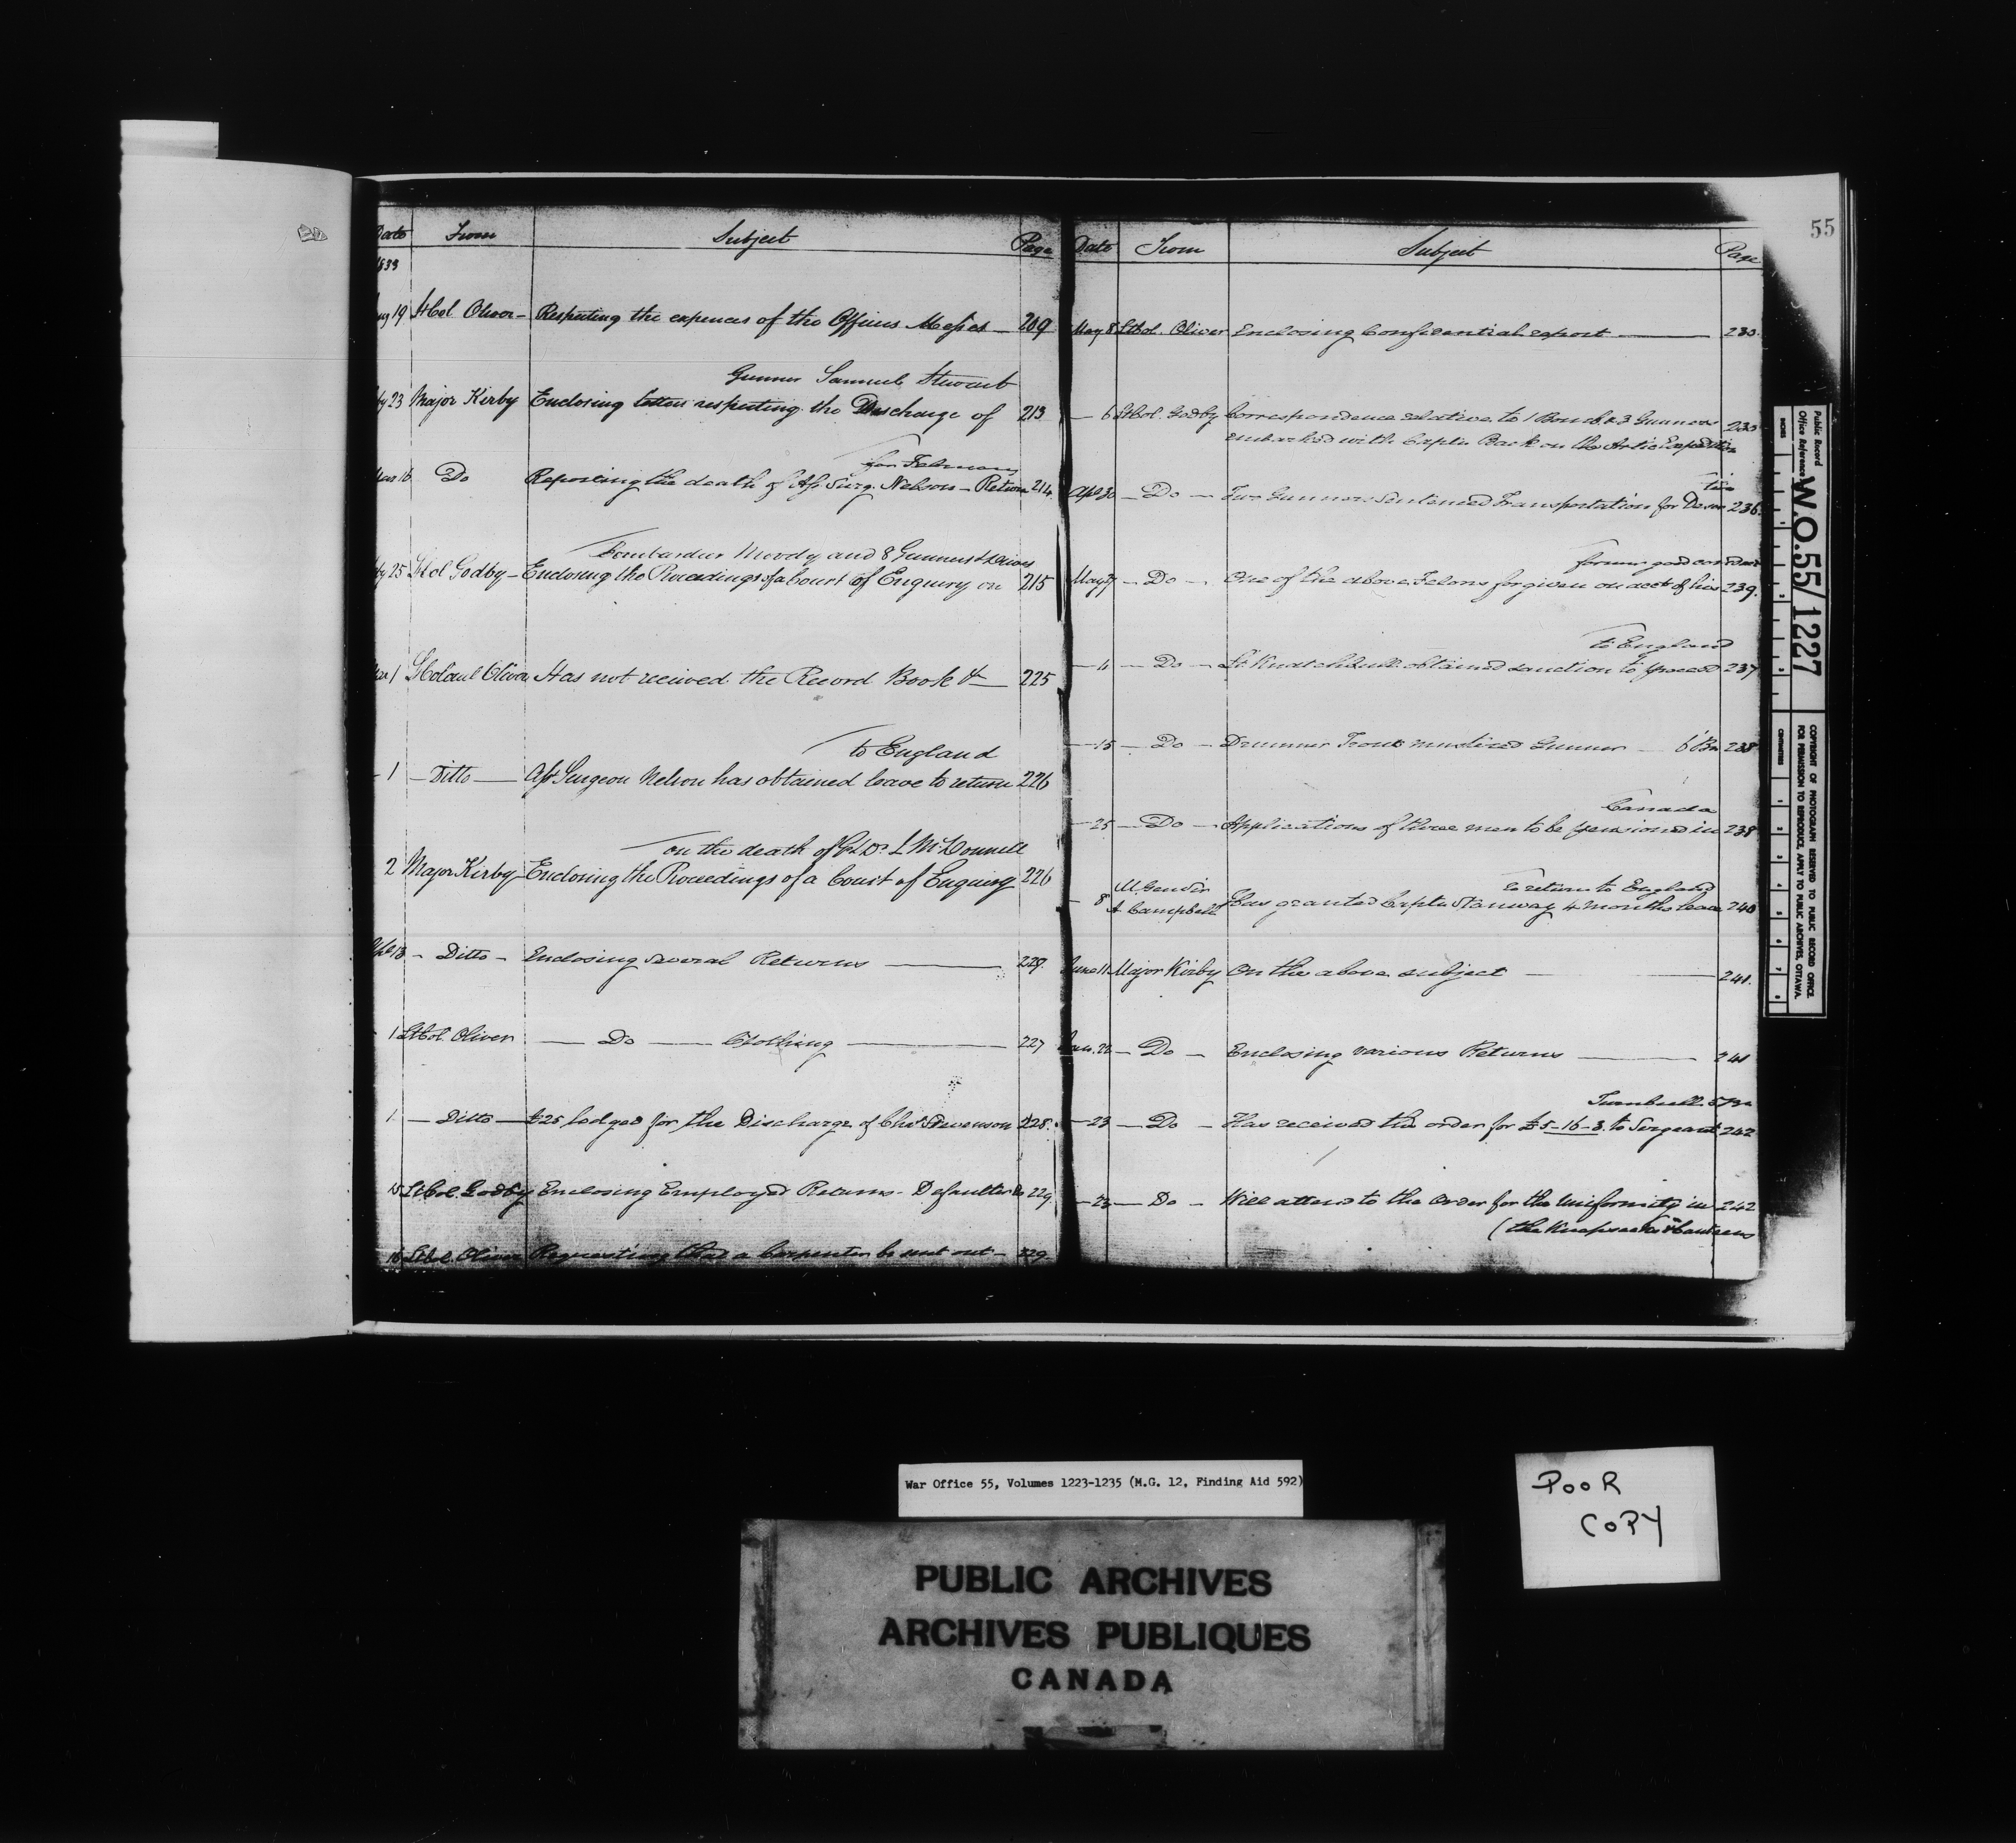 55
Date From Subject Page
1833
Aug 19 Lt Col. Oliver — Respecting the expences of the Officers Messes — 209
Gunner Samuel Stewart
23 Major Kirby Enclosing letters respecting the Discharge of 213
for February
Mar 16 Do Reporting the death of Asst Surg. Nelson — Return 214
Bombardier Moody and 8 Gunners & Drivers
25 Lt Col Godby — Enclosing the Proceedings of a Court of Enquiry on 215
Mar 1 Lt Colonel Oliver Has not received the Record Book &c — 225
to England
- 1 — Ditto — Asst Surgeon Nelson has obtained leave to return 226
on the death of McDonnell
2 Major Kirby — Enclosing the Proceedings of a Court of Enquiry 226
Apl 13 - Ditto - Enclosing several Returns — 227.
- 1 Lt Col. Oliver — Do — Clothing — 227
1. — Ditto — £25 lodged for the Discharge of Chas Stevenson 228.
15 Lt Col. Godby Enclosing Employed Returns - Defaulter Do 229
16 Lt Col. Oliver Requesting that a Carpenter be sent out — 229.
Date From Subject Page
May 8 Lt Col. Oliver Enclosing Confidential report — 230.
— 6 Lt Col. Godby Correspondence relative to 1 Bomb. & 3 Gunners 230
embarked with Captn Back on the Artic Expedition
tion
Apl 30 — Do — Two Gunners sentenced Transportation for Deser 236.
former good conduct
May 27 — Do — One of the above Felons forgiven on acct of his 239.
to England
— 11 — Do — Lt Knatchbull obtained sanction to proceed 237
— 15 — Do — Drummer Trout mustered Gunner — 6 Bn 238
Canada
— 25 — Do — Applications of three men to be pensioned in 238
M. Genl Sir to return to England
- 8 A. Campbell Has granted Captn Stanway 4 months leave 240
June 11 Major Kirby On the above subject — 241.
Jun. 22 — Do — Enclosing various Returns — 241
Turnbull 5 Bn
— 23 — Do — Has received the order for £5-16-3. to Sergeant 242
— 23 — Do — Will attend to the Order for the Uniformity in 242
(the Knapsacks & Canteens
Public Record Office Reference:- W.O.55/1227
INCHES
CENTIMETRES
COPYRIGHT OF PHOTOGRAPH RESERVED TO PUBLIC RECORD OFFICE.
FOR PERMISSION TO REPRODUCE, APPLY TO PUBLIC ARCHIVES, OTTAWA.
War Office 55, Volumes 1223-1235 (M.G. 12, Finding Aid 592)
POOR
COPY
PUBLIC ARCHIVES
ARCHIVES PUBLIQUES
CANADA